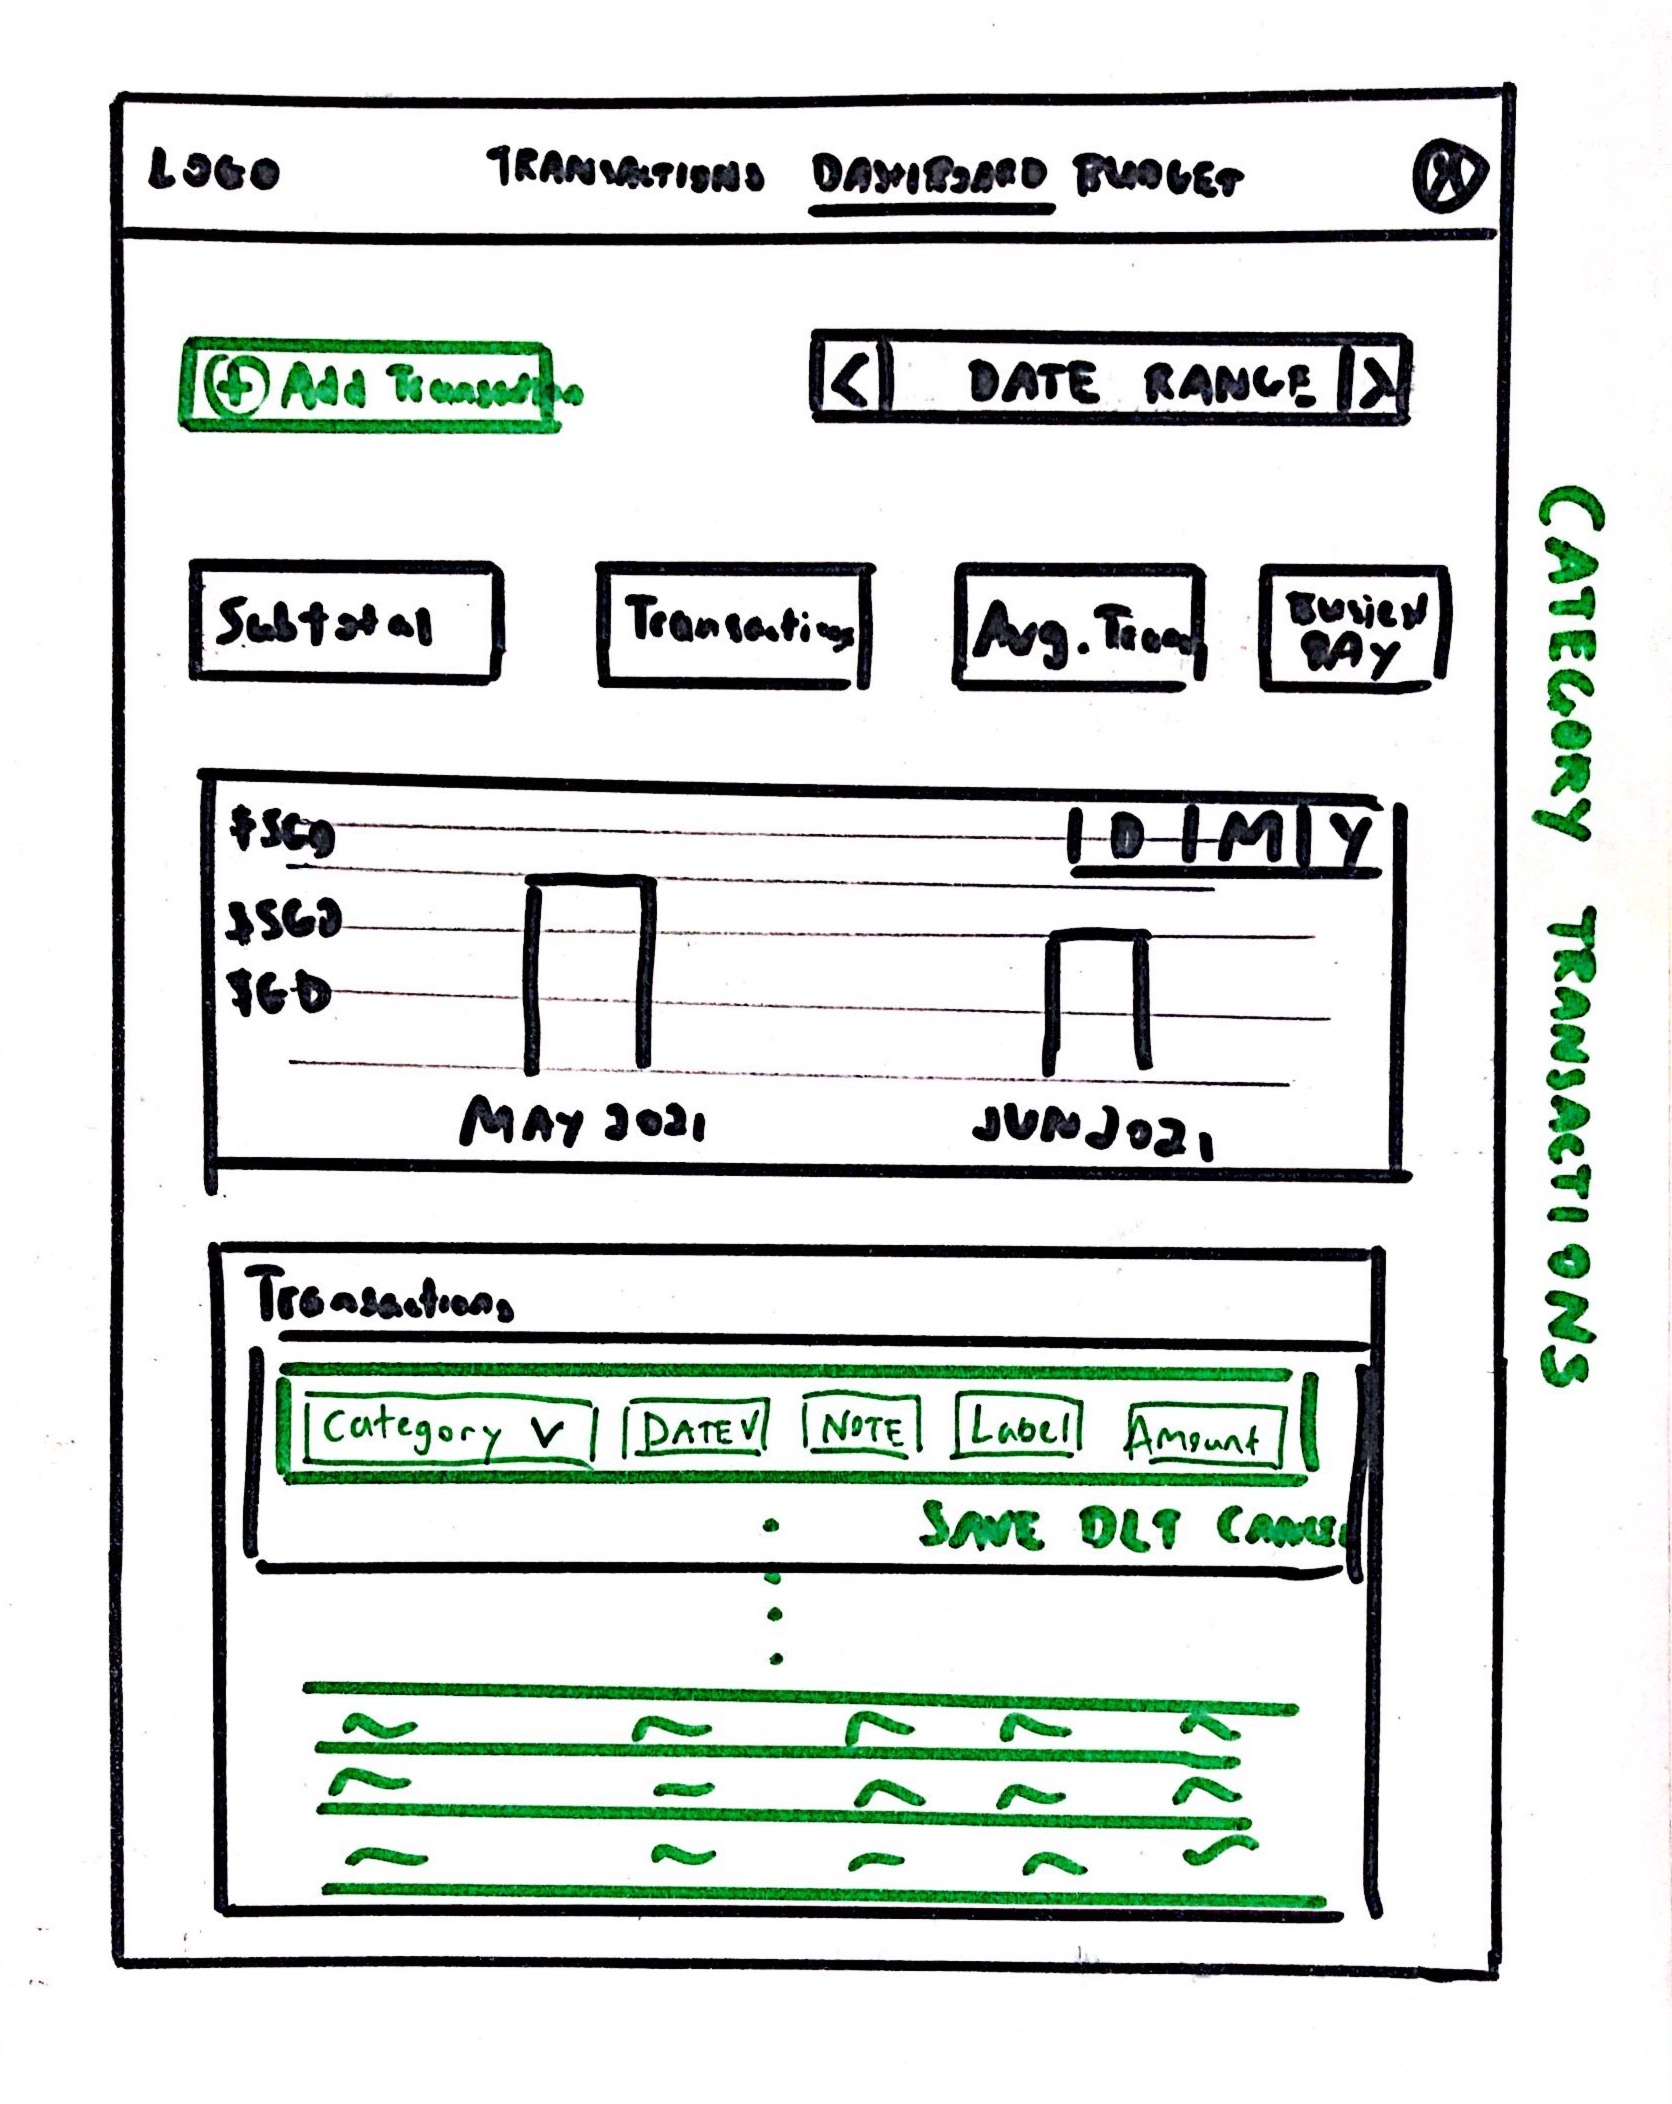 LOGO TRANSACTIONS DASHBOARD BUDGET
+ Add Transaction
< DATE RANGE >
Subtotal
Transactions
Avg. Trans
BUSIEST
DAY
$SGD
D M Y
$SGD
$GD
MAY 2021
JUN 2021
Transactions
Category V
DATE V
NOTE
Label
Amount
SAVE DLT CANCEL
CATEGORY TRANSACTIONS